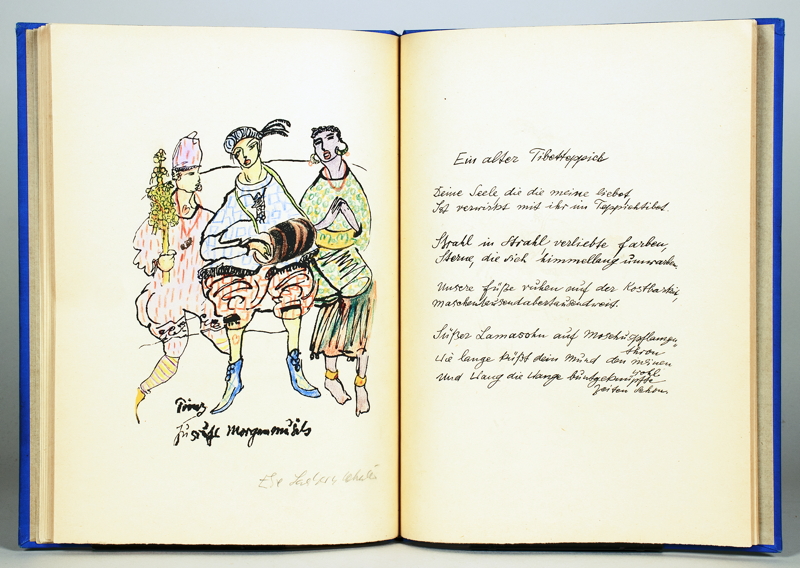 Prinz
Jussufs Morgenmusik
Else Lasker-Schüler
Ein alter Tibetteppich
Deine Seele die die meine liebet
Ist verwirkt mit ihr im Teppichtibet.
Strahl in Strahl verliebte Farben,
Sterne, die sich himmellang umwarben.
Unsere Füße ruhen auf der Kostbarkeit,
maschentausendabertausendweit.
Süßer Lamasohn auf Moschuspflanzen
thron
Wie lange küßt dein Mund den meinen
wohl
Und Wang die Wange buntgeknüpfte
Zeiten schon